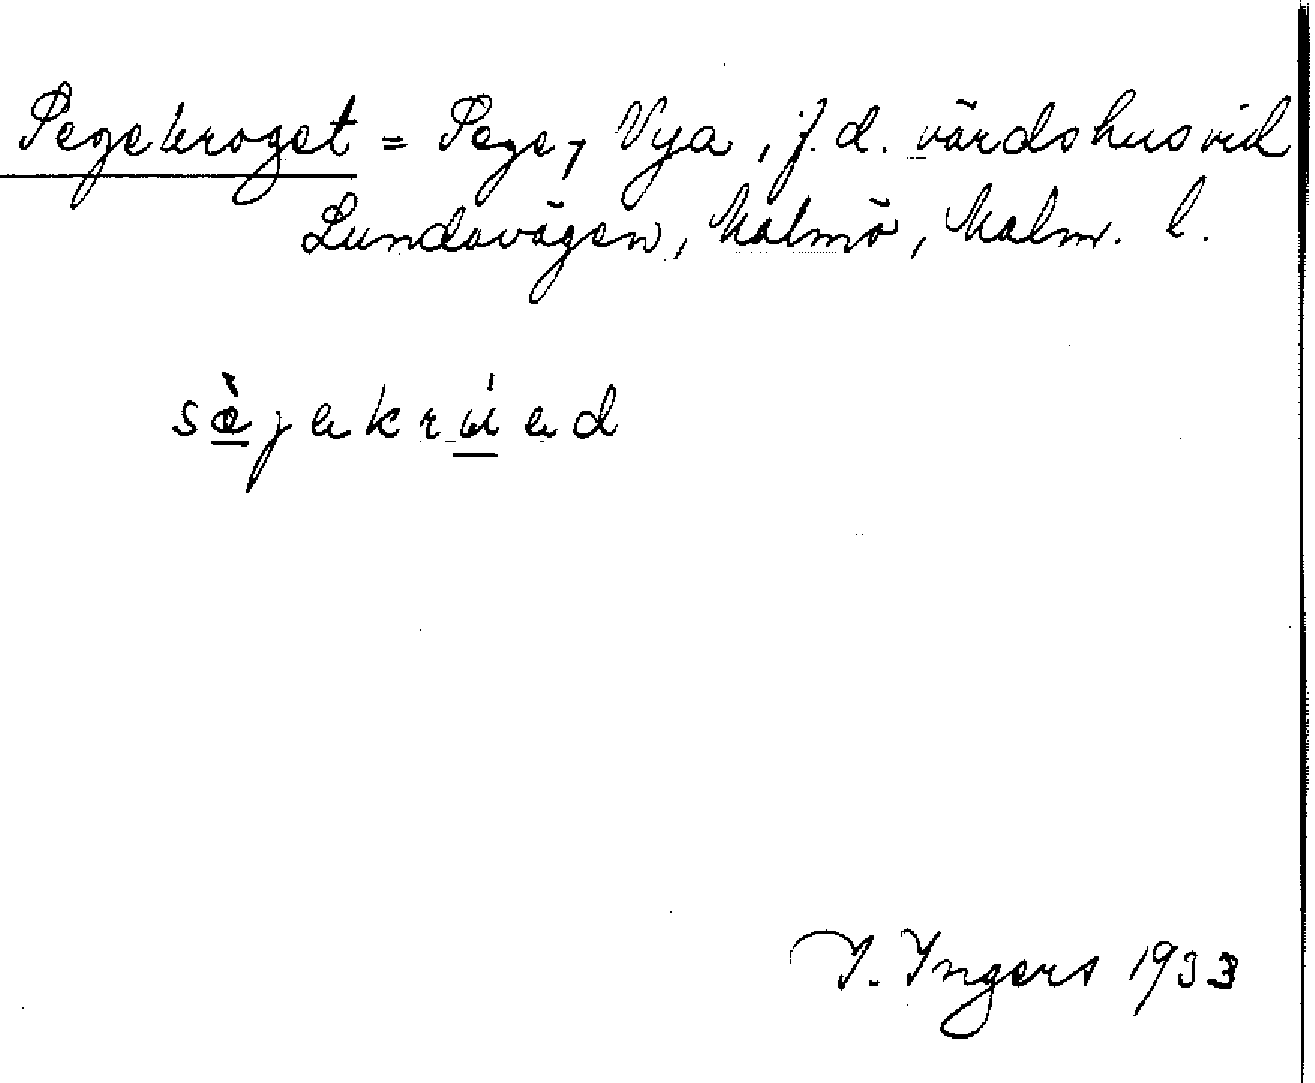 Segekroget = Sege, Nya, f.d. värdshus vid
Lundavägen, Malmö, Malm. l.
sæ̀jəkrúəd
I. Ingers 1933